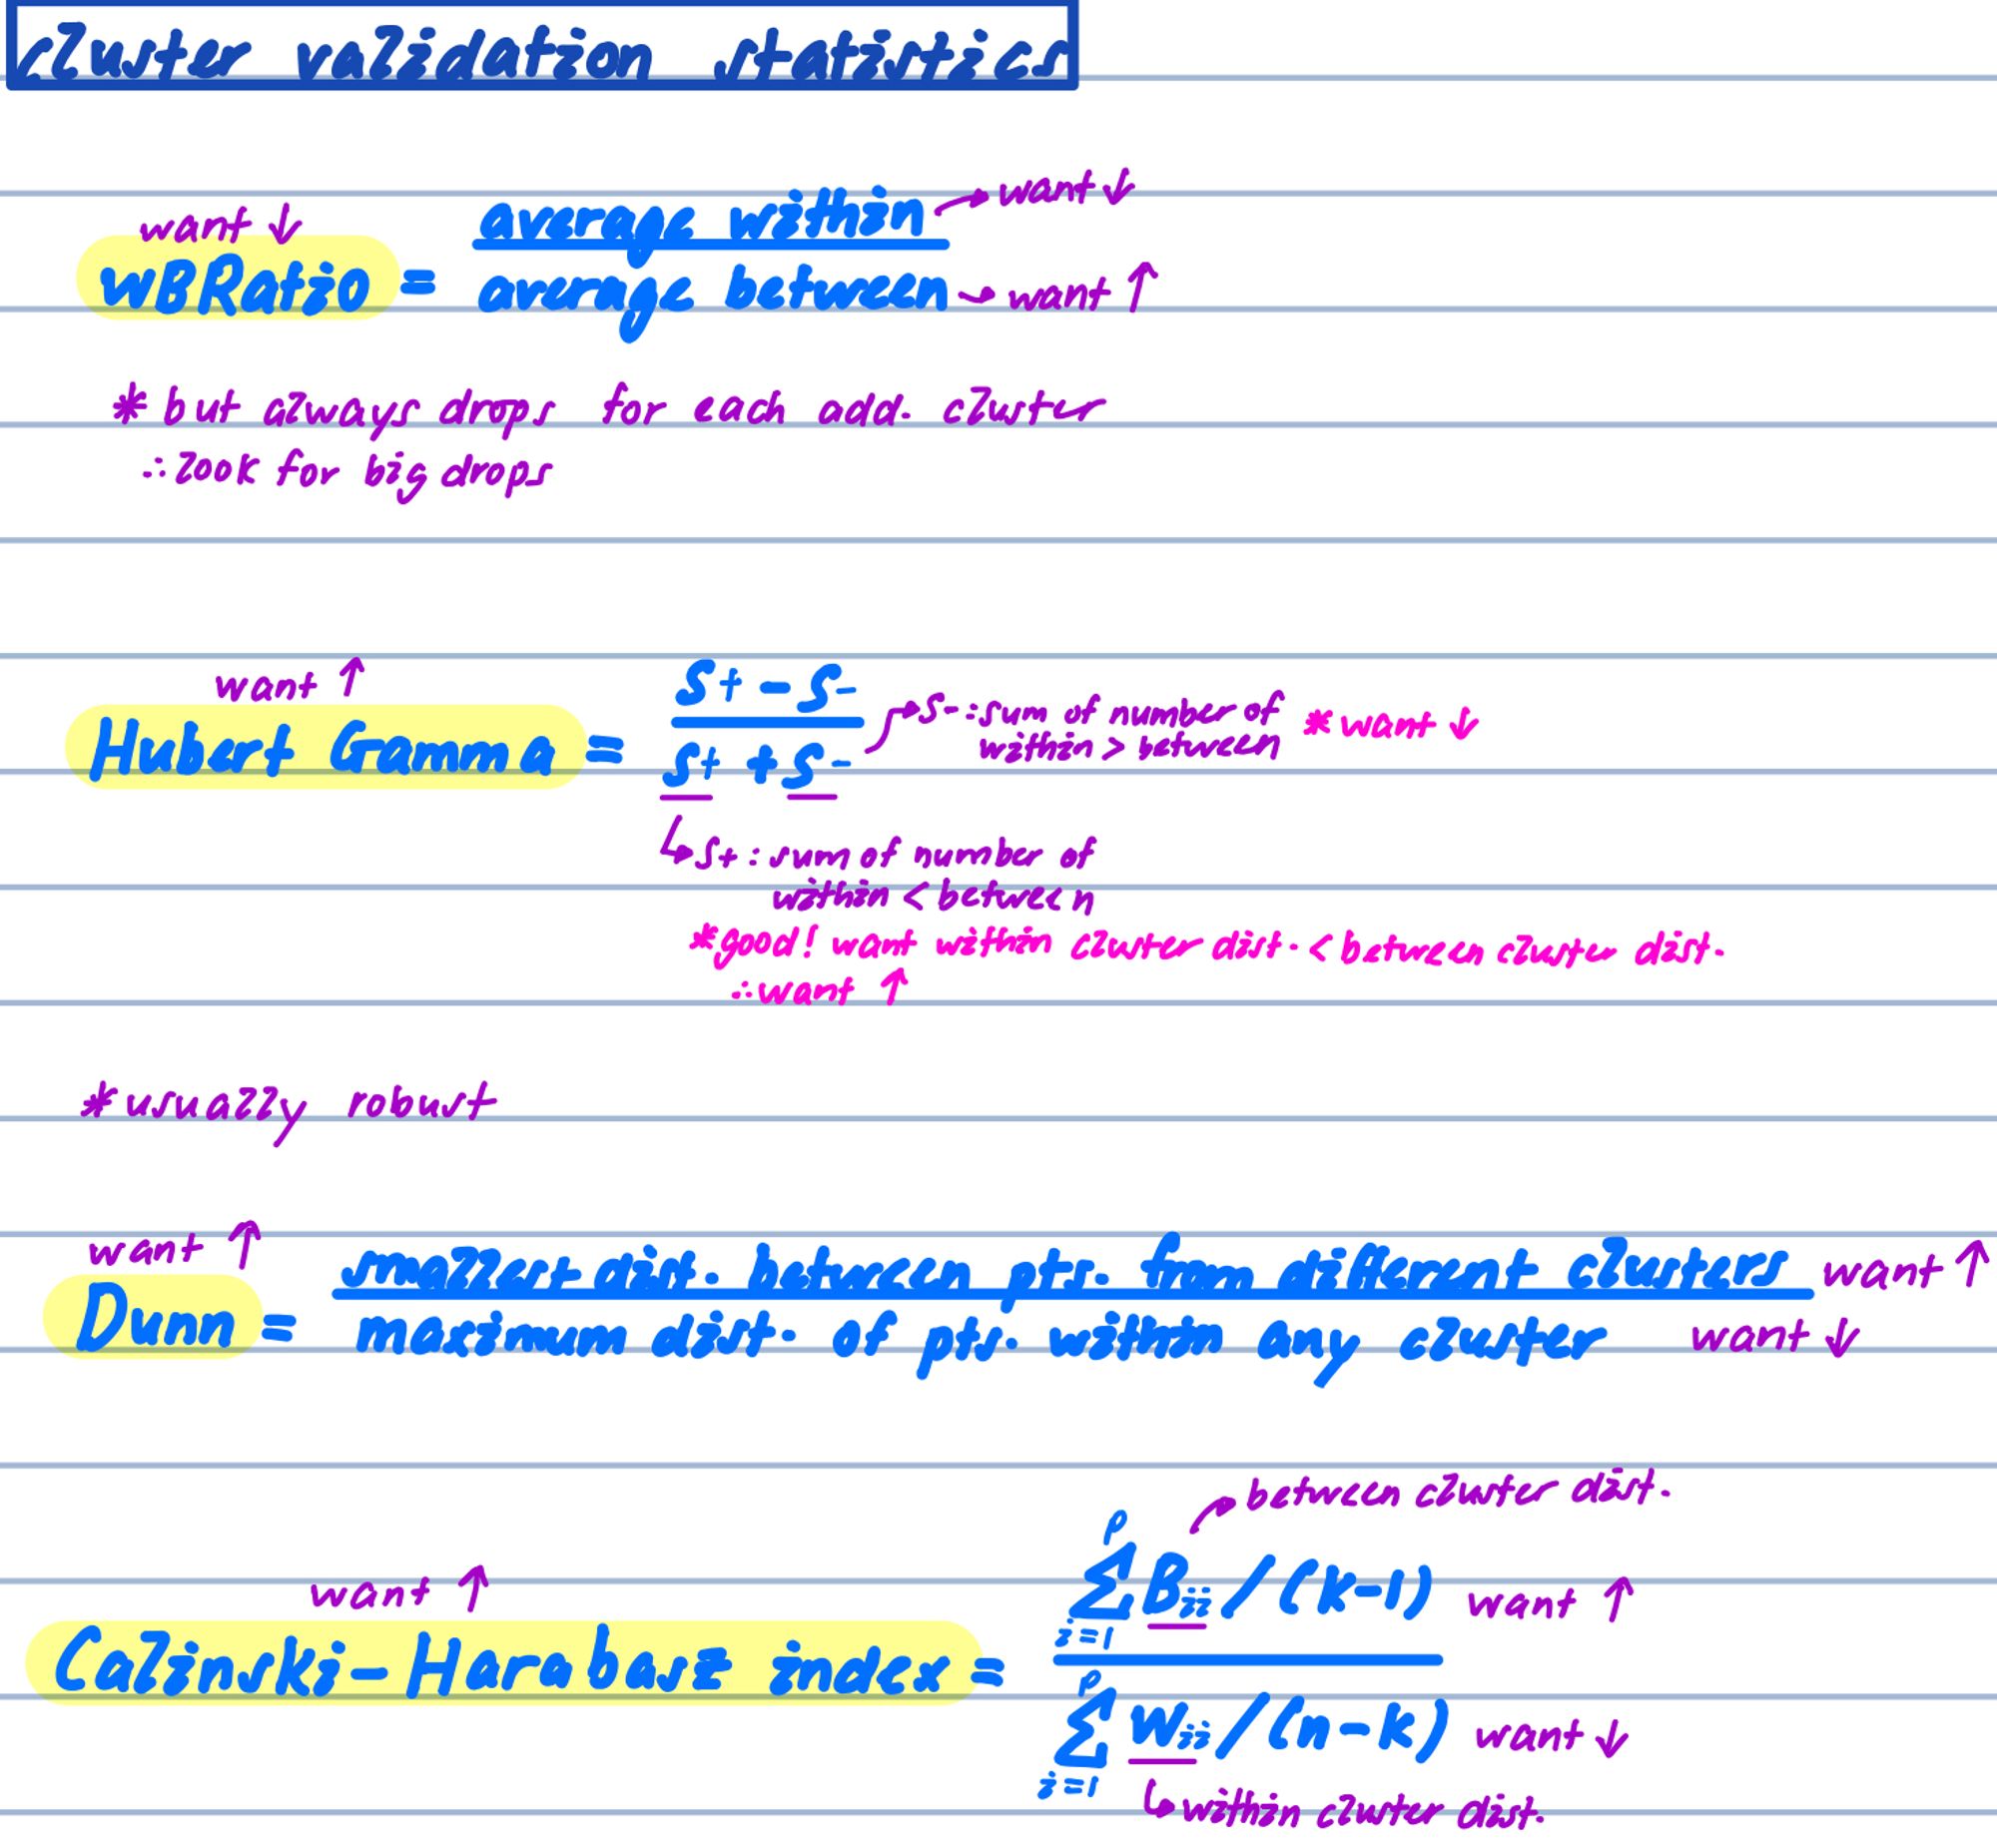 cluster validation statistics
want ↓
wBRatio = average within → want ↓
average between → want ↑
* but always drops for each add. cluster
∴ look for big drops
want ↑
Hubert Gamma = S+ - S-
S+ + S-
S- : sum of number of within > between * want ↓
S+ : sum of number of
within < between
* good! want within cluster dist. < between cluster dist.
∴ want ↑
* usually robust
want ↑
Dunn = smallest dist. between pts. from different clusters want ↑
maximum dist. of pts. within any cluster want ↓
between cluster dist.
want ↑
Calinski-Harabasz index = p ∑ i=1 Bii / (k-1) want ↑
p ∑ i=1 Wii / (n-k) want ↓
within cluster dist.